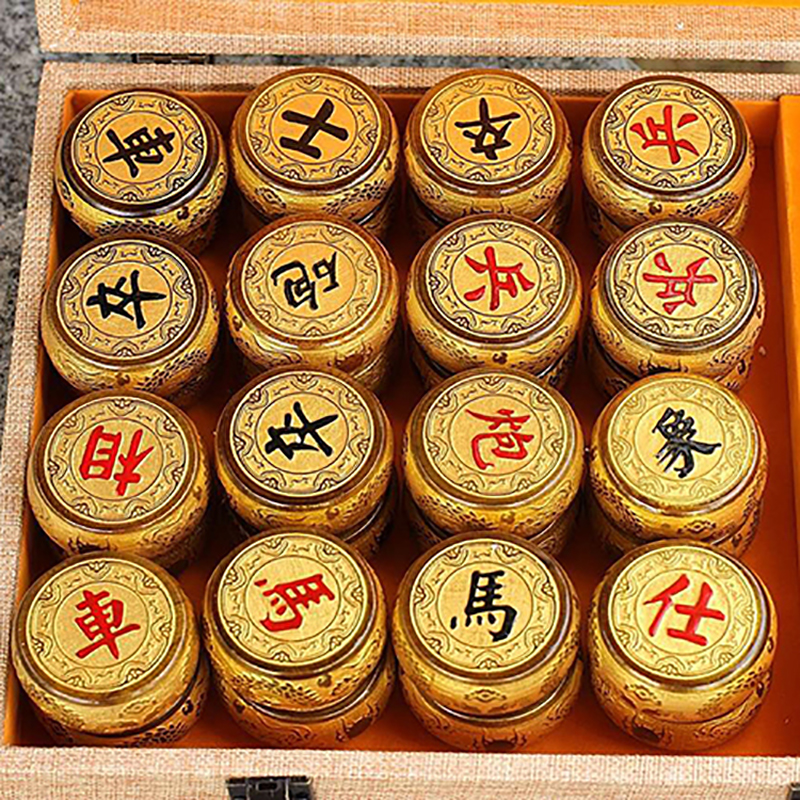 車 士 卒 兵
卒 砲 兵 兵
相 卒 炮 象
車 馬 馬 仕